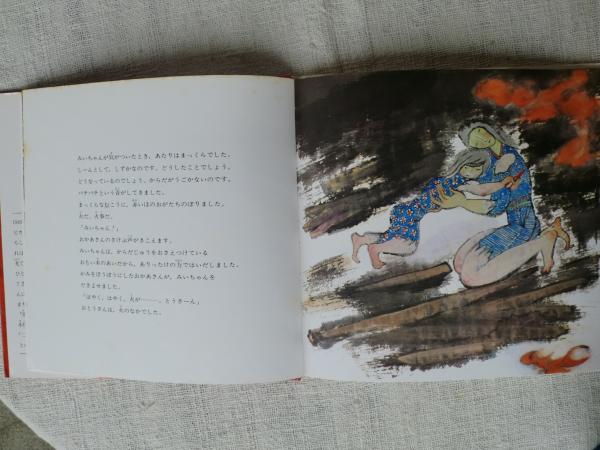 みいちゃんが気がついたとき、あたりはまっくらでした。
しーんとして、しずかなのです。どうしたことでしょう。
どうなっているのでしょう。からだがうごかないのです。
パチパチという音がしてきました。
まっくらなむこうに、赤いほのおがたちのぼりました。
火だ。火事だ。
「みいちゃん！」
おかあさんのさけび声がきこえます。
みいちゃんは、からだじゅうをおさえつけている
おもい木のあいだから、ありったけの力ではいだしました。
かみをぼうぼうにしたおかあさんが、みいちゃんを
だきよせました。
「はやく、はやく、火が………。とうさーん」
おとうさんは、火のなかでした。